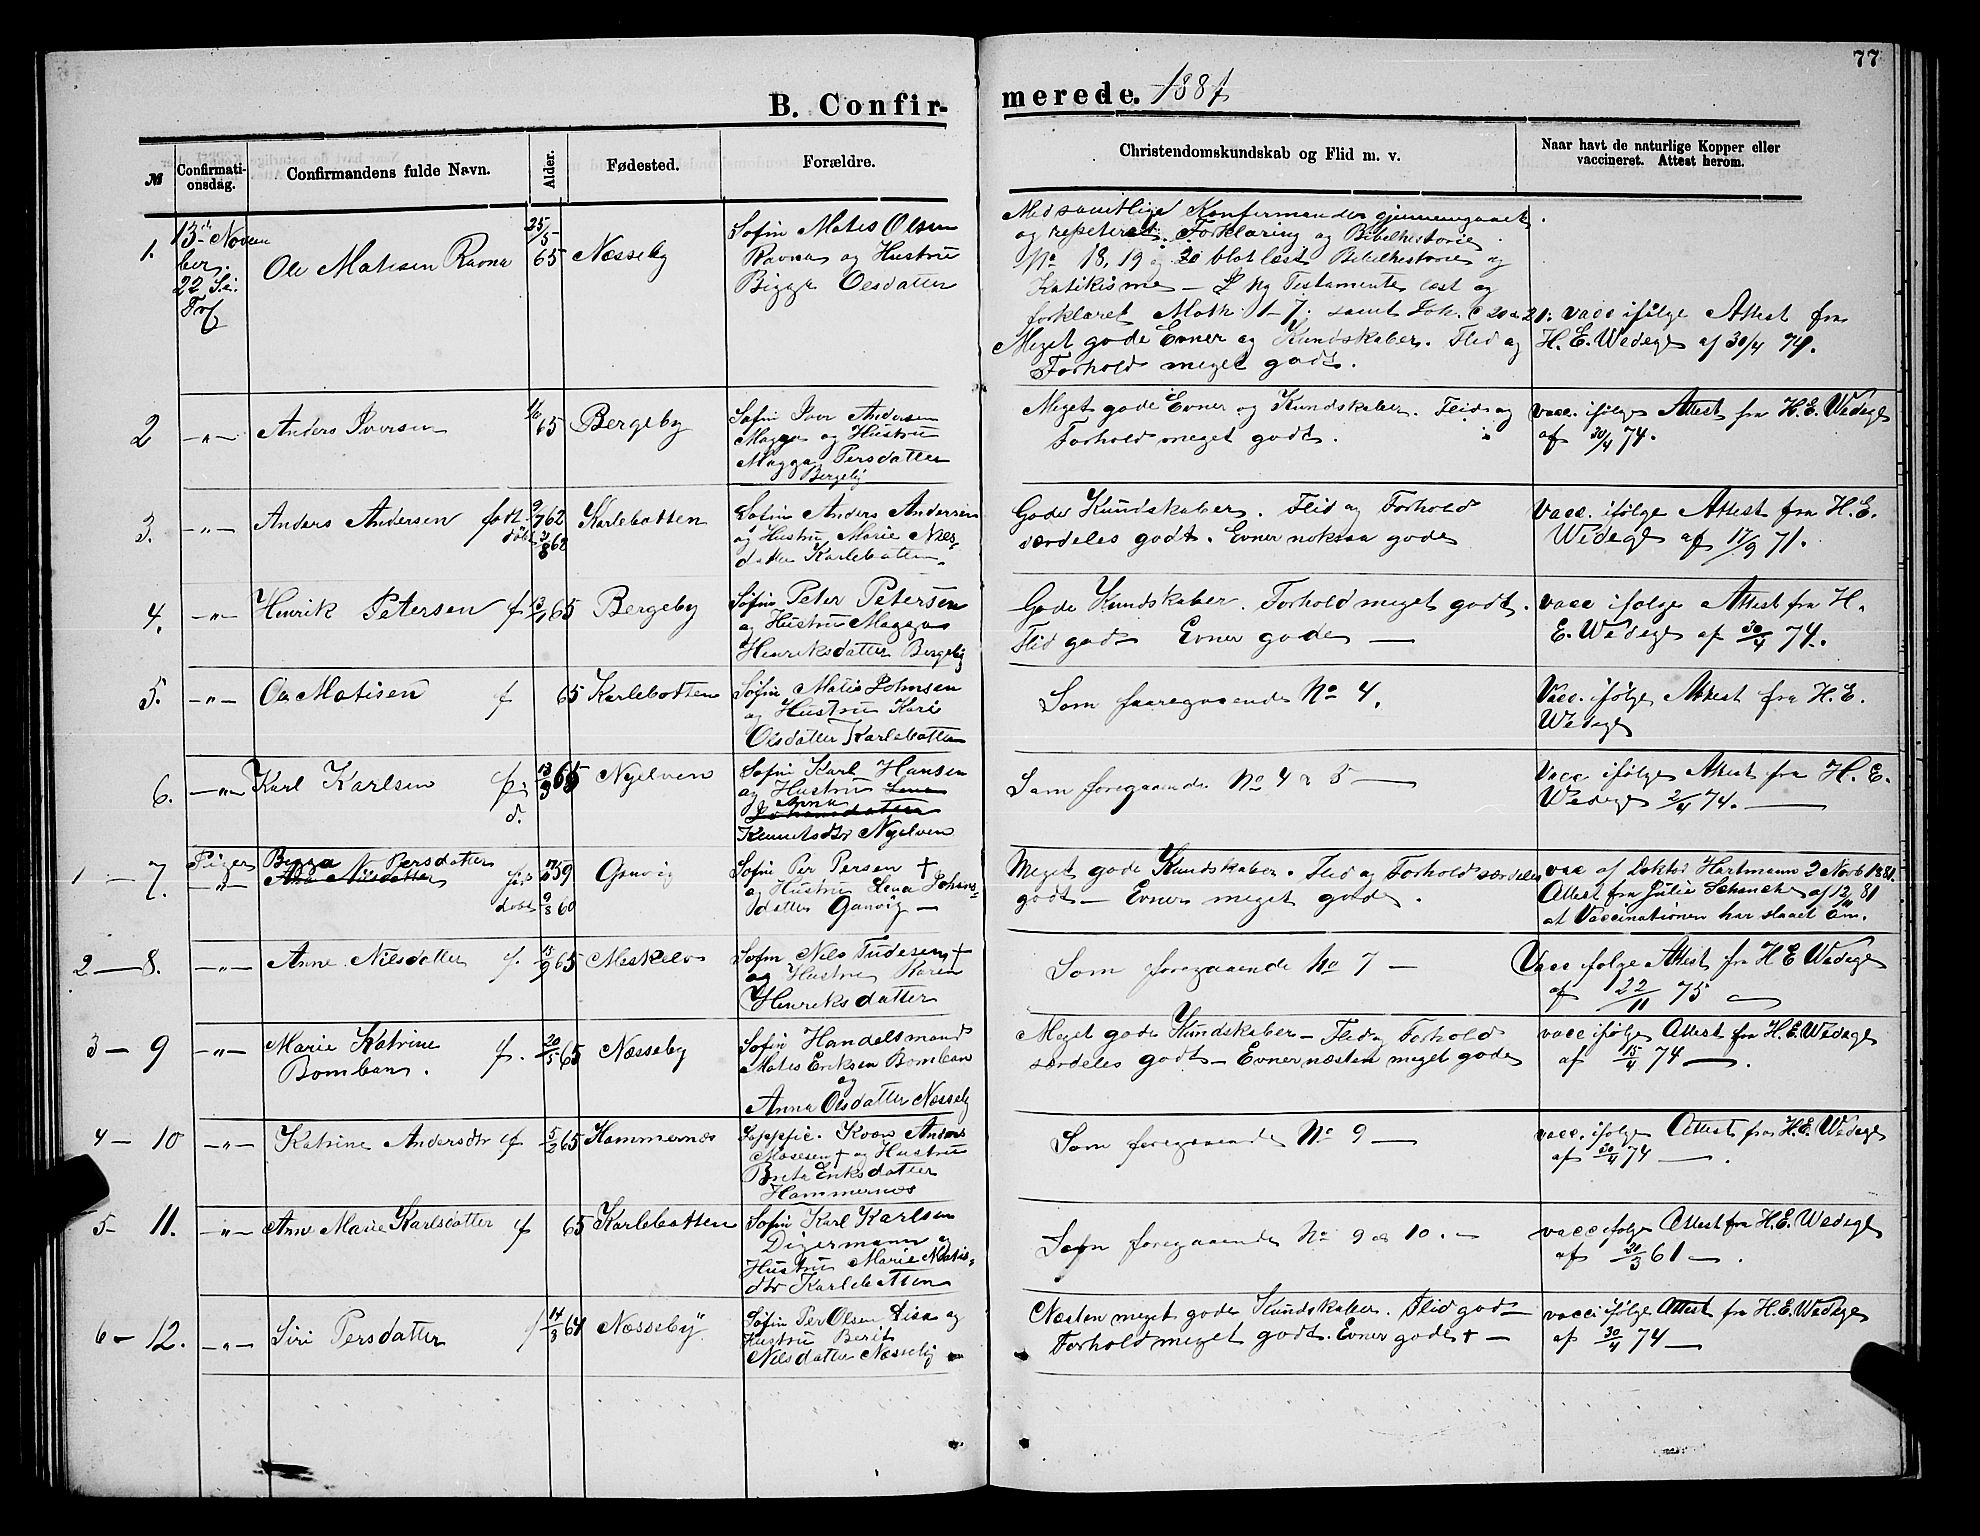 77
B. Confir-
merede. 1881
№
Confirmati-
onsdag.
Confirmandens fulde Navn.
Alder.
Fødested.
Forældre.
Christendomskundskab og Flid m. v.
Naar havt de naturlige Kopper eller
vaccineret. Attest herom.
1.
13de Novem
ber.
22 S. e.
Tref
Ole Matisen Ravna
25/5 65
Næsseby
Søfm Matis Olsen
Ravna og Hustru
Bigga Olsdatter
Med samtlige Konfirmander gjennemgaaet
og repeteret. Forklaring og Bibelhistorie
No 18, 19 og 20 blot læst Bibelhistorie og
Katikisme — I Ny Testamente læst og
forklaret Math. 1-7. samt Joh. C 20 & 21.
Meget gode Evner og Kundskaber. Flid og
Forhold meget godt.
vacc ifølge Attest fra
H. E. Wedege af 30/4 74.
2
—"—
Anders Iversen
65
Bergeby
Søfm Iver Andersen
Magga og Hustru
Magga Persdatter
Bergeby
Meget gode Evner og Kundskaber. Flid og
Forhold meget godt.
vacc. ifølge Attest fra H. E. Wedege
af 30/4 74.
3.
—"—
Anders Andersen født
døbt
9/7 62
3/8 62
Karlebotten
Søfm Anders Andersen
og Hustru Marie Niels-
datter Karlebotten
Gode Kundskaber. Flid og Forhold
særdeles godt. Evner noksaa gode
Vacc. ifølge Attest fra H. E.
Wedege af 17/9 71.
4.
—"—
Henrik Petersen f
13/1 65
Bergeby
Søfm Peter Petersen
og Hustru Magga
Henriksdatter Bergeby
Gode Kundskaber. Forhold meget godt.
Flid god Evner gode —
vacc ifølge Attest fra H.
E. Wedege af 30/4 74.
5.
—"—
Ole Matisen f
65
Karlebotten
Søfm Matis Johnsen
og Hustru Kari
Olsdatter Karlebotten
Som foregaaende No 4.
Vacc. ifølge Attest fra H. E.
Wedege
6.
—"—
Karl Karlsen f.
d.
13/3 65
Nyelven
Søfm Karl Hansen
og Hustru Lena
Anna
Johansdatter
Kemitsdtr Nyelven
Som foregaaende No 4 & 5 —
Vacc ifølge Attest fra H. E.
Wedege 2/4 74. —
1 — 7.
Piger
—"—
Bigga Persdatter
Ane Nilsdatter
født
døbt
59
9/3 60
Ganvig
Søfm Per Persen †
og Hustru Lena Johans-
datter Ganvig —
Meget gode Kundskaber. Flid og Forhold særdeles
godt — Evner meget gode.
vac af Doktor Hartmann 2 Novb 1881.
Attest fra Julie Schanche af 12/11 81
at Vaccinationen har slaaet an.
2 — 8.
—"—
Anne Nilsdatter f.
15/9 65
Meskelv
Søfm Nils Tudesen †
og Hustru Karen
Henriksdatter
Som foregaaende No 7 —
Vacc ifølge Attest fra H E Wedege
af 22/11 75
3 — 9
—"—
Marie Katrine
Bomban. f.
20/5 65
Næsseby
Søfm Handelsmand
Matis Eriksen Bomban
og
Anna Olsdatter Næsseby
Meget gode Kundskaber — Flid og Forhold
særdeles godt — Evner næsten meget gode
vacc ifølge Attest fra H. E. Wedege
af 15/4 74 —.
4 — 10
—"—
Katrine Andersdtr f
5/2 65
Hammernæs
Søgfic. Kvæn Anders
Mosesen † og Hustru
Breta Eriksdatter
Hammernæs
Som foregaaende No 9 —
vacc. ifølge Attest fra H. E. Wedege
af 30/4 74 —.
5 — 11.
—"—
Ane Marie Karlsdatter f
65
Karlebotten
Søfm Karl Karlsen
Digermann og
Hustru Marie Matis-
dtr Karlebotten
Søfn foregaaende No 9 & 10. —
vacc ifølge Attest fra H. E. Wedege
af 30/3 61 —.
6 — 12.
—"—
Siri Persdatter f
14/3 64
Næsseby
Søfm Per Olsen Aisa og
Hustru Berit
Nilsdatter Næsseby
Næsten meget gode Kundskaber. Flid god —
Forhold meget godt. Evner gode † —
vacc ifølge Attest fra H. E. Wedege
af 30/4 74 —